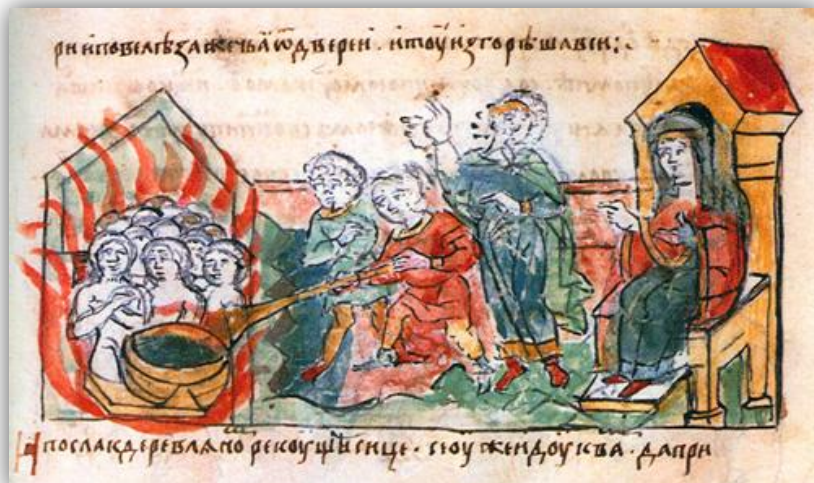 ри и повелѣ зажечь ѧ ѿ двереи . и тоу изгорѣша вси :
И посла к деревляно рекоущѣ сице . се оуже идоу к ва . да при